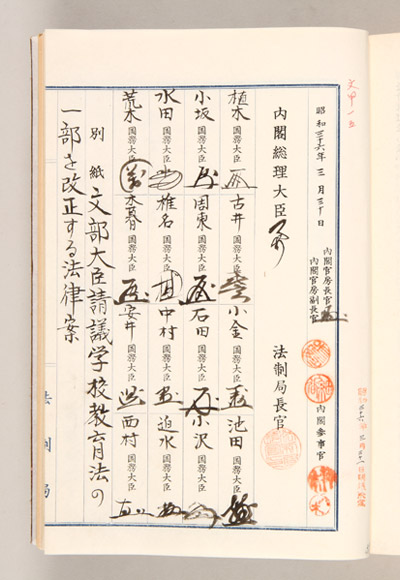 昭和三十六年三月三十日
内閣官房長官
内閣官房副長官
内閣参事官
内閣総理大臣 法制局長官
植木国務大臣 古井国務大臣 小金国務大臣 池田国務大臣
小坂国務大臣 周東国務大臣 石田国務大臣 小沢国務大臣
水田国務大臣 椎名国務大臣 中村国務大臣 迫水国務大臣
荒木国務大臣 木暮国務大臣 安井国務大臣 西村国務大臣
別紙文部大臣請議学校教育法の
一部を改正する法律案
法制局